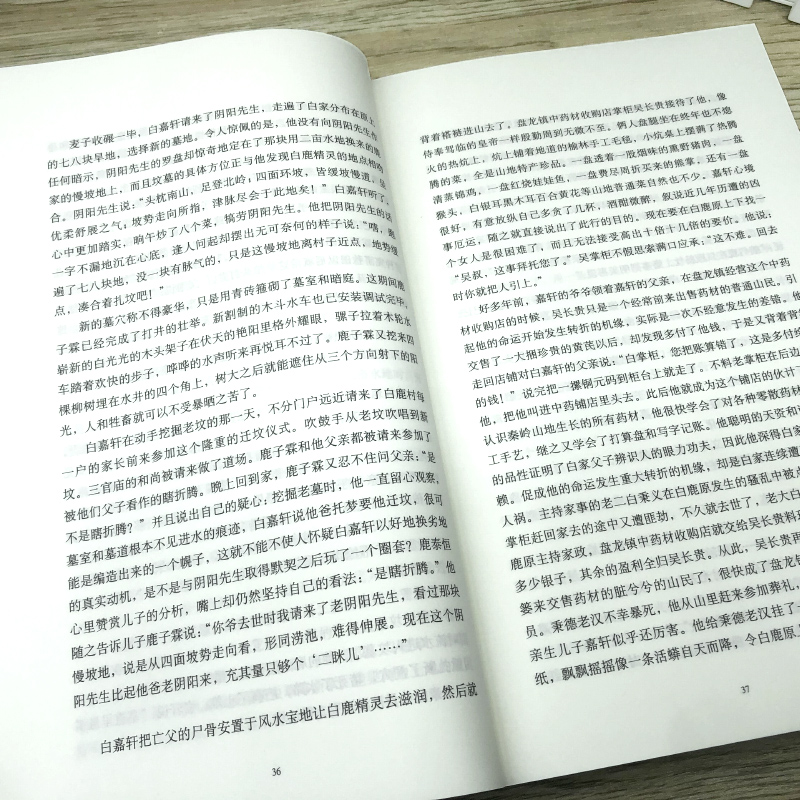 麦子收碾一毕，白嘉轩请来了阴阳先生，走遍了白家分布在原上
的七八块旱地，选择新的墓地。令人惊佩的是，他没有向阴阳先生作
任何暗示，阴阳先生的罗盘却惊奇地定在了那块用二亩水地换来的鹿
家的慢坡地上，而且坟墓的具体方位正与他发现白鹿精灵的地点相吻
合。阴阳先生说：“头枕南山，足登北岭；四面环坡，皆缓坡慢道，呈
优柔舒展之气；坡势走向所指，津脉尽会于此地矣！”白嘉轩听了，
心中更加踏实，晌午炒了八个菜，犒劳阴阳先生。他把阴阳先生的话
一字不漏地沉在心底，逢人问起却摆出无可奈何的样子说：“唔，跑
遍了七八块地，没一块有脉气的，只是这慢坡地离村子近点，地势缓
点，凑合着扎坟吧！”
新的墓穴称不得豪华，只是用青砖箍砌了墓室和暗庭。这期间鹿
子霖已经完成了打井的壮举。新割制的木斗水车也已安装调试完毕，
崭新的白光光的木头架子在伏天的艳阳里格外耀眼，骡子拉着木轮水
车踏着欢快的步子，哗哗的水声听来再悦耳不过了。鹿子霖又挖来四
棵柳树埋在水井的四个角上，树大之后就能遮住从三个方向射下的阳
光，人和牲畜就可以不受暴晒之苦了。
白嘉轩在动手挖掘老坟的那一天，不分门户远近请来了白鹿村每
一户的家长前来参加这个隆重的迁坟仪式。吹鼓手从老坟吹唱到新
坟。三官庙的和尚被请来做了道场。鹿子霖和他父亲都被请来参加了
被他们父子看作的瞎折腾。晚上回到家，鹿子霖又忍不住问父亲：“是
不是瞎折腾？”并且说出自己的疑心：挖掘老墓时，他一直留心观察，
墓室和墓道根本不见进水的痕迹，白嘉轩说他爸托梦要他迁坟，很可
能是编造出来的一个幌子，这就不能不使人怀疑白嘉轩以好地换劣地
的真实动机，是不是与阴阳先生取得默契之后玩了一个圈套？鹿泰恒
心里赞赏儿子的分析，嘴上却仍然坚持自己的看法：“是瞎折腾。”他
随之告诉儿子鹿子霖说：“你爷去世时我请来了老阴阳先生，看过那块
慢坡地，说是从四面坡势走向看，形同涝池，难得伸展。现在这个阴
阳先生比起他爸老阴阳来，充其量只够个‘二眯儿’……”
白嘉轩把亡父的尸骨安置于风水宝地让白鹿精灵去滋润，然后就
36
背着褡裢进山去了。盘龙镇中药材收购店掌柜吴长贵接待了他，像
侍奉驾临的皇帝一样殷勤周到无微不至。俩人盘腿坐在终年也不熄
火的热炕上，炕上铺着地道的榆林手工毛毯，小炕桌上摆满了热腾
腾的菜，全是山地特产珍品。一盘透着一股烟味的熏野猪肉，一盘
清蒸锦鸡，一盘红烧娃娃鱼，一盘费尽周折买来的熊掌，还有一盘
猴头，白银耳黑木耳百合黄花等山地普通菜自然也不少。嘉轩心境
很好，有意放纵自己多贪了几杯，酒酣微醉，叙说近几年历遭的凶
事厄运，随之就直接说出了此行的目的。现在要在白鹿原上下找一
个女人是很困难了，而且无法接受高出十倍十几倍的要价。他说：
“吴叔，这事拜托您了。”吴掌柜不假思索满口应承：“这不难。回去
时你就把人引上。”
好多年前，嘉轩的爷爷领着嘉轩的父亲，在盘龙镇经营这个中药
材收购店的时候，吴长贵只是一个经常前来出售药材的普通山民。引
起他的命运开始发生转折的机缘，实际是一次不经意发生的差错。他
交售了一大捆珍贵的黄芪以后，却发现多付了他钱，于是又背着背
走回店铺对白嘉轩的父亲说：“白掌柜，您把账算错了，这是多付给
的钱！”说完把一摞铜元码到柜台上就走了。不料老掌柜在后边
他，把他叫进中药铺店里头去。此后他就成为这个铺店的伙计了
认识秦岭山地生长的所有药材，他很快学会了对各种零散药材
工手艺，继之又学会了打算盘和写字记账。他聪明的天资和
的品性证明了白家父子辨识人的眼力功夫，因此他深得白家
赖。促成他的命运发生重大转折的机缘，却是白家连续遭
人祸。主持家事的老二白秉义在白鹿原发生的骚乱中被点
掌柜赶回家去的途中又遭匪劫，不久就去世了，老大白
鹿原主持家政，盘龙镇中药材收购店就交给吴长贵料理
多少银子，其余的盈利全归吴长贵。从此，吴长贵再
篓来交售药材的脏兮兮的山民了，很快成了盘龙镇
员。秉德老汉不幸暴死，他从山里赶来参加葬礼，
亲生儿子嘉轩似乎还厉害。他给秉德老汉挂了一
纸，飘飘摇摇像一条活蟒自天而降，令白鹿原
37